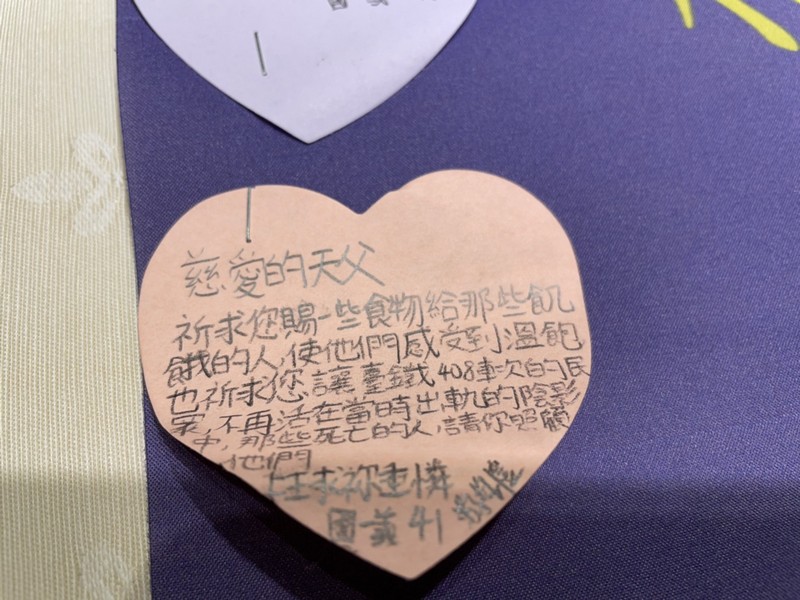 慈愛的天父
祈求您賜一些食物給那些飢
餓的人,使他們感受到溫飽
也祈求您讓臺鐵408車次的民
眾,不再活在當時出軌的陰影
中,那些死亡的人,請你照顧
他們
求祢垂憐
國義 41